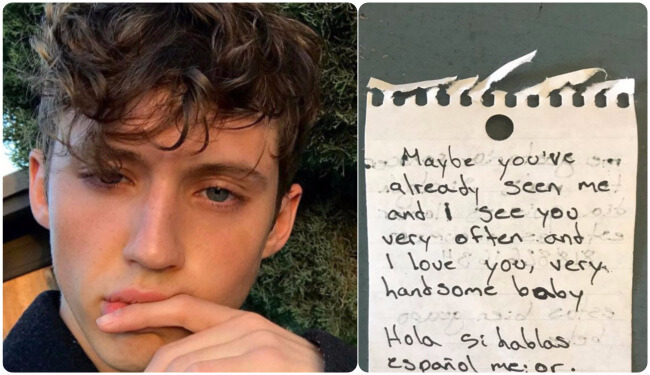 Maybe you've
already seen me
and I see you
very often and
I love you, very
handsome baby
Hola si hablas
español mejor.